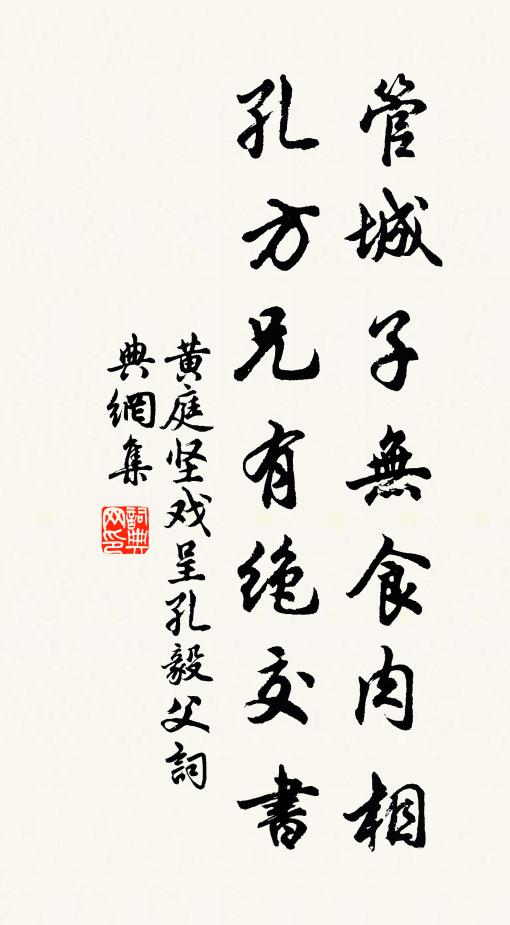 管城子無食肉相
孔方兄有绝交書
黄庭坚戏呈孔毅父詞
典網集
詞典
网印